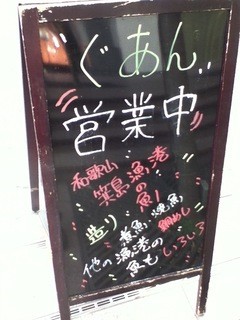 ぐあん
営業中
和歌山
箕島漁港
の魚!
造り 煮魚 焼魚 鯛めし
他の漁港の
魚もいろいろ